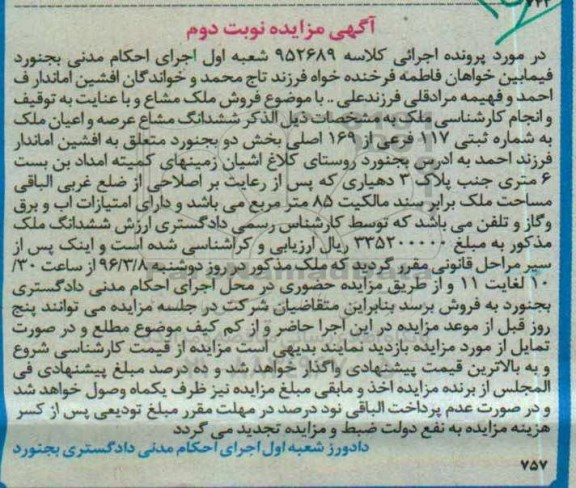 ۷۲۲
آگهی مزایده نوبت دوم
در مورد پرونده اجرائی کلاسه ۹۵۲۶۸۹ شعبه اول اجرای احکام مدنی بجنورد
فیمابین خواهان فاطمه فرخنده خواه فرزند تاج محمد و خواندگان افشین اماندار ف
احمد و فهیمه مرادقلی فرزندعلی .. با موضوع فروش ملک مشاع و با عنایت به توقیف
و انجام کارشناسی ملک به مشخصات ذیل الذکر ششدانگ مشاع عرصه و اعیان ملک
به شماره ثبتی ۱۱۷ فرعی از ۱۶۹ اصلی بخش دو بجنورد متعلق به افشین اماندار
فرزند احمد به ادرس بجنورد روستای کلاغ اشیان زمینهای کمیته امداد بن بست
۶ متری جنب پلاک ۳ دهیاری که پس از رعایت بر اصلاحی از ضلع غربی الباقی
مساحت ملک برابر سند مالکیت ۸۵ متر مربع می باشد و دارای امتیازات اب و برق
وگاز و تلفن می باشد که توسط کارشناس رسمی دادگستری ارزش ششدانگ ملک
مذکور به مبلغ ۳۳۵۲۰۰۰۰۰ ریال ارزیابی و کراشناسی شده است و اینک پس از
سیر مراحل قانونی مقرر گردید که ملک مذکور در روز دوشنبه ۹۶/۳/۸ از ساعت ۳۰/
۱۰ لغایت ۱۱ و از طریق مزایده حضوری در محل اجرای احکام مدنی دادگستری
بجنورد به فروش برسد بنابراین متقاضیان شرکت در جلسه مزایده می توانند پنج
روز قبل از موعد مزایده در این اجرا حاضر و از کم کیف موضوع مطلع و در صورت
تمایل از مورد مزایده بازدید نمایند بدیهی است مزایده از قیمت کارشناسی شروع
و به بالاترین قیمت پیشنهادی واگذار خواهد شد و ده درصد مبلغ پیشنهادی فی
المجلس از برنده مزایده اخذ و مابقی مبلغ مزایده نیز ظرف یکماه وصول خواهد شد
و در صورت عدم پرداخت الباقی نود درصد در مهلت مقرر مبلغ تودیعی پس از کسر
هزینه مزایده به نفع دولت ضبط و مزایده تجدید می گردد
دادورز شعبه اول اجرای احکام مدنی دادگستری بجنورد
۷۵۷